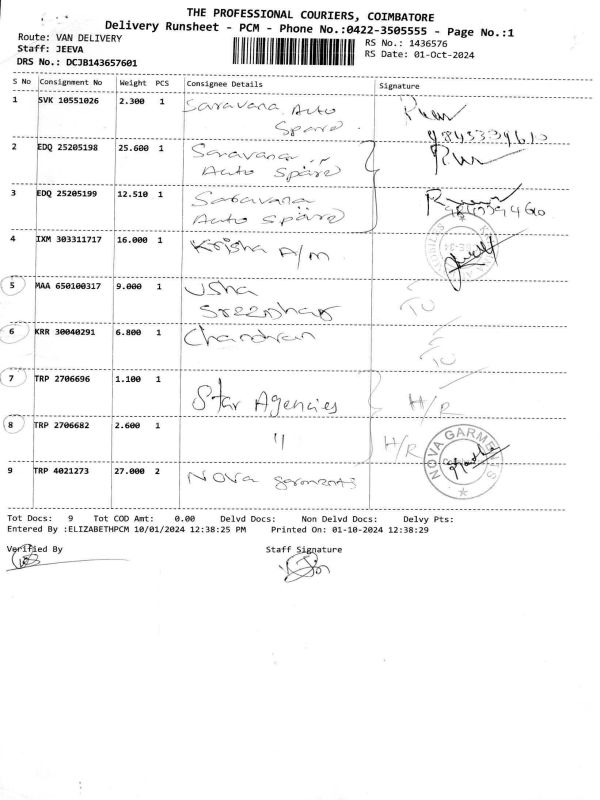 THE PROFESSIONAL COURIERS, COIMBATORE
Delivery Runsheet - PCM - Phone No.:0422-3505555 - Page No.:1
Route: VAN DELIVERY
RS No.: 1436576
Staff: JEEVA
RS Date: 01-Oct-2024
DRS No.: DCJB143657601
S No Consignment No Weight PCS Consignee Details Signature
1 SVK 10551026 2.300 1 Saravana Auto
Spare
2 EDQ 25205198 25.600 1 Saravana
Auto Spare
3 EDQ 25205199 12.510 1 Saravana
Auto Spare
4 IXM 303311717 16.000 1 Krisha A/M
5 MAA 650100317 9.000 1 Usha
Sreedhar
6 KRR 30040291 6.800 1 Chandran
7 TRP 2706696 1.100 1 Star Agencies H/R
8 TRP 2706682 2.600 1 " H/R
NOVA GARMENTS
9 TRP 4021273 27.000 2 Nova garments
Tot Docs: 9 Tot COD Amt: 0.00 Delvd Docs: Non Delvd Docs: Delvy Pts:
Entered By :ELIZABETHPCM 10/01/2024 12:38:25 PM Printed On: 01-10-2024 12:38:29
Verified By Staff Signature